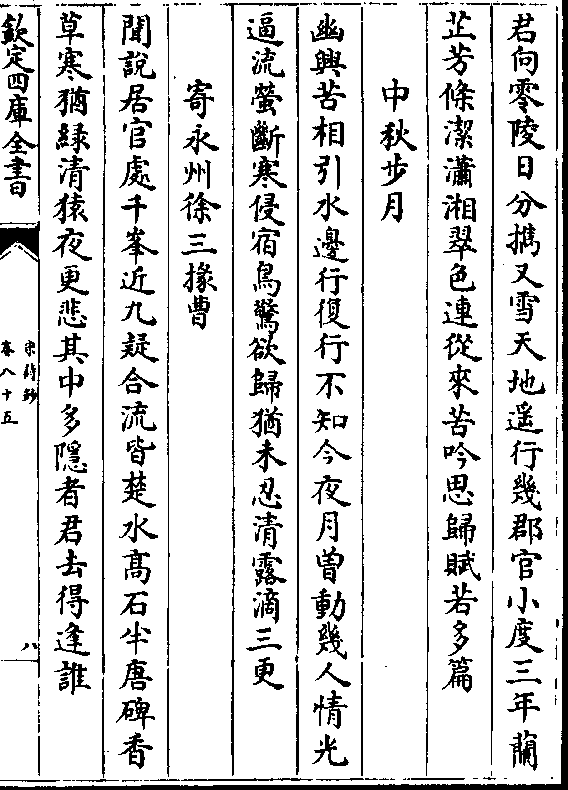 君向零陵日分攜又雪天地遥行幾郡官小度三年蘭
芷芳條潔瀟湘翠色連從來苦吟思歸賦若多篇
中秋步月
幽興苦相引水邊行復行不知今夜月曽動幾人情光
逼流螢斷寒侵宿鳥驚欲歸猶未忍清露滴三更
寄永州徐三掾曹
聞說居官處千峯近九疑合流皆楚水髙石半唐碑香
草寒猶緑清猿夜更悲其中多隱者君去得逢誰
欽定四庫全書
宋詩鈔
卷八十五
八